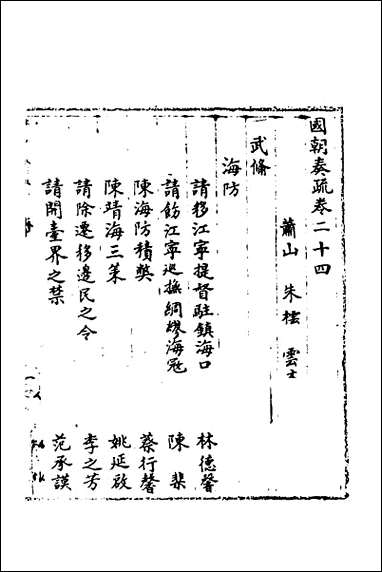 國朝奏疏卷二十四
蕭山 朱橒 雲士
武備
海防
請移江寧提督駐鎮海口 林德馨
請飭江寧巡撫綢繆海寇 陳棐
陳海防積獘 蔡行馨
陳靖海三策 姚延啟
請除遷移邊民之令 李之芳
請開臺界之禁 范承謨